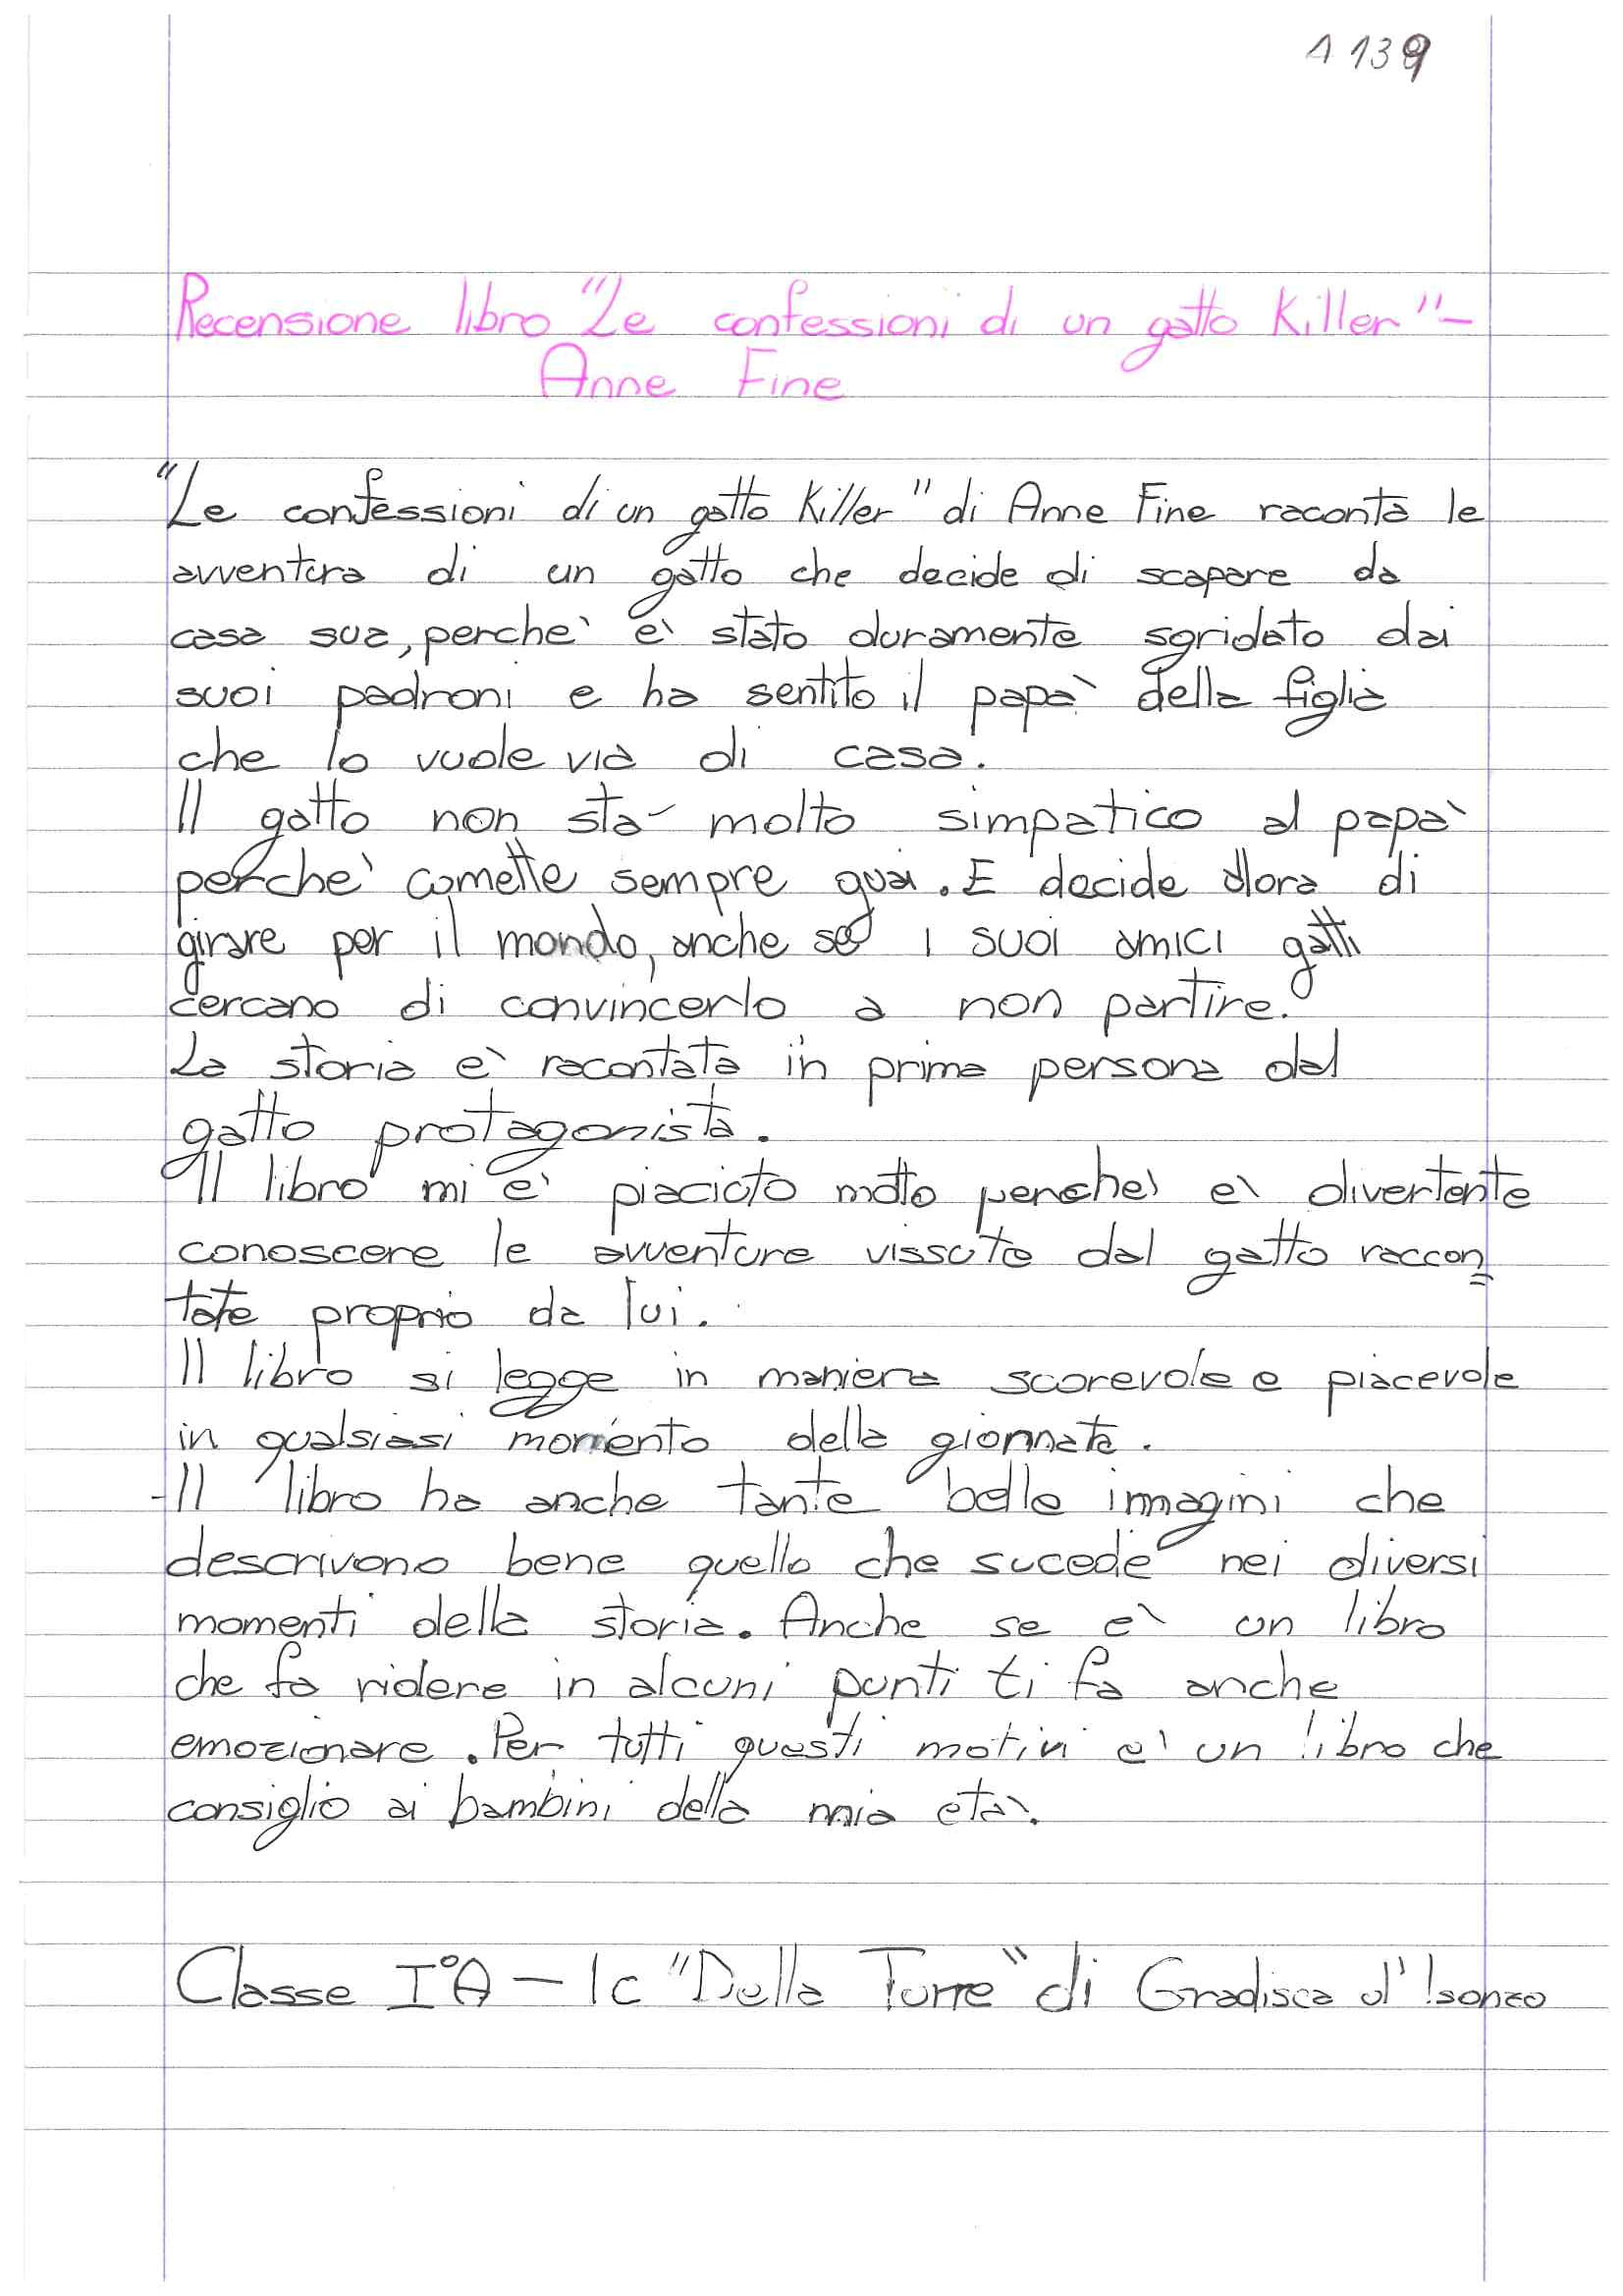 A 139
Recensione libro "Le confessioni di un gatto Killer" -
Anne Fine
"Le confessioni di un gatto Killer" di Anne Fine raconta le
avventura di un gatto che decide di scapare da
casa sua, perchè è stato duramente sgridato dai
suoi padroni e ha sentito il papà della figlia
che lo vuole via di casa.
Il gatto non sta molto simpatico al papà
perchè comette sempre guai. E decide allora di
girare per il mondo, anche se i suoi amici gatti
cercano di convincerlo a non partire.
La storia è racontata in prima persona dal
gatto protagonista.
Il libro mi è piaciuto molto perchè è divertente
conoscere le avventure vissute dal gatto raccon=
tate proprio da lui.
Il libro si legge in maniera scorevole e piacevole
in qualsiasi momento della giornata.
Il libro ha anche tante belle immagini che
descrivono bene quello che sucede nei diversi
momenti della storia. Anche se è un libro
che fa ridere in alcuni punti ti fa anche
emozionare. Per tutti questi motivi è un libro che
consiglio ai bambini della mia età.
Classe I°A - Ic "Della Torre" di Gradisca d'Isonzo